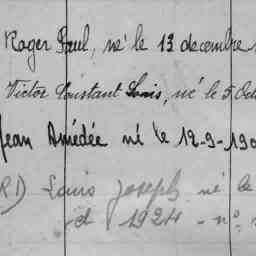 Roger Paul, né le 13 decembre
Victor Constant Louis, né le 5 Oct
Jean Amédée né le 12-9-190
RD) Louis Joseph né le
d 1924 - n°